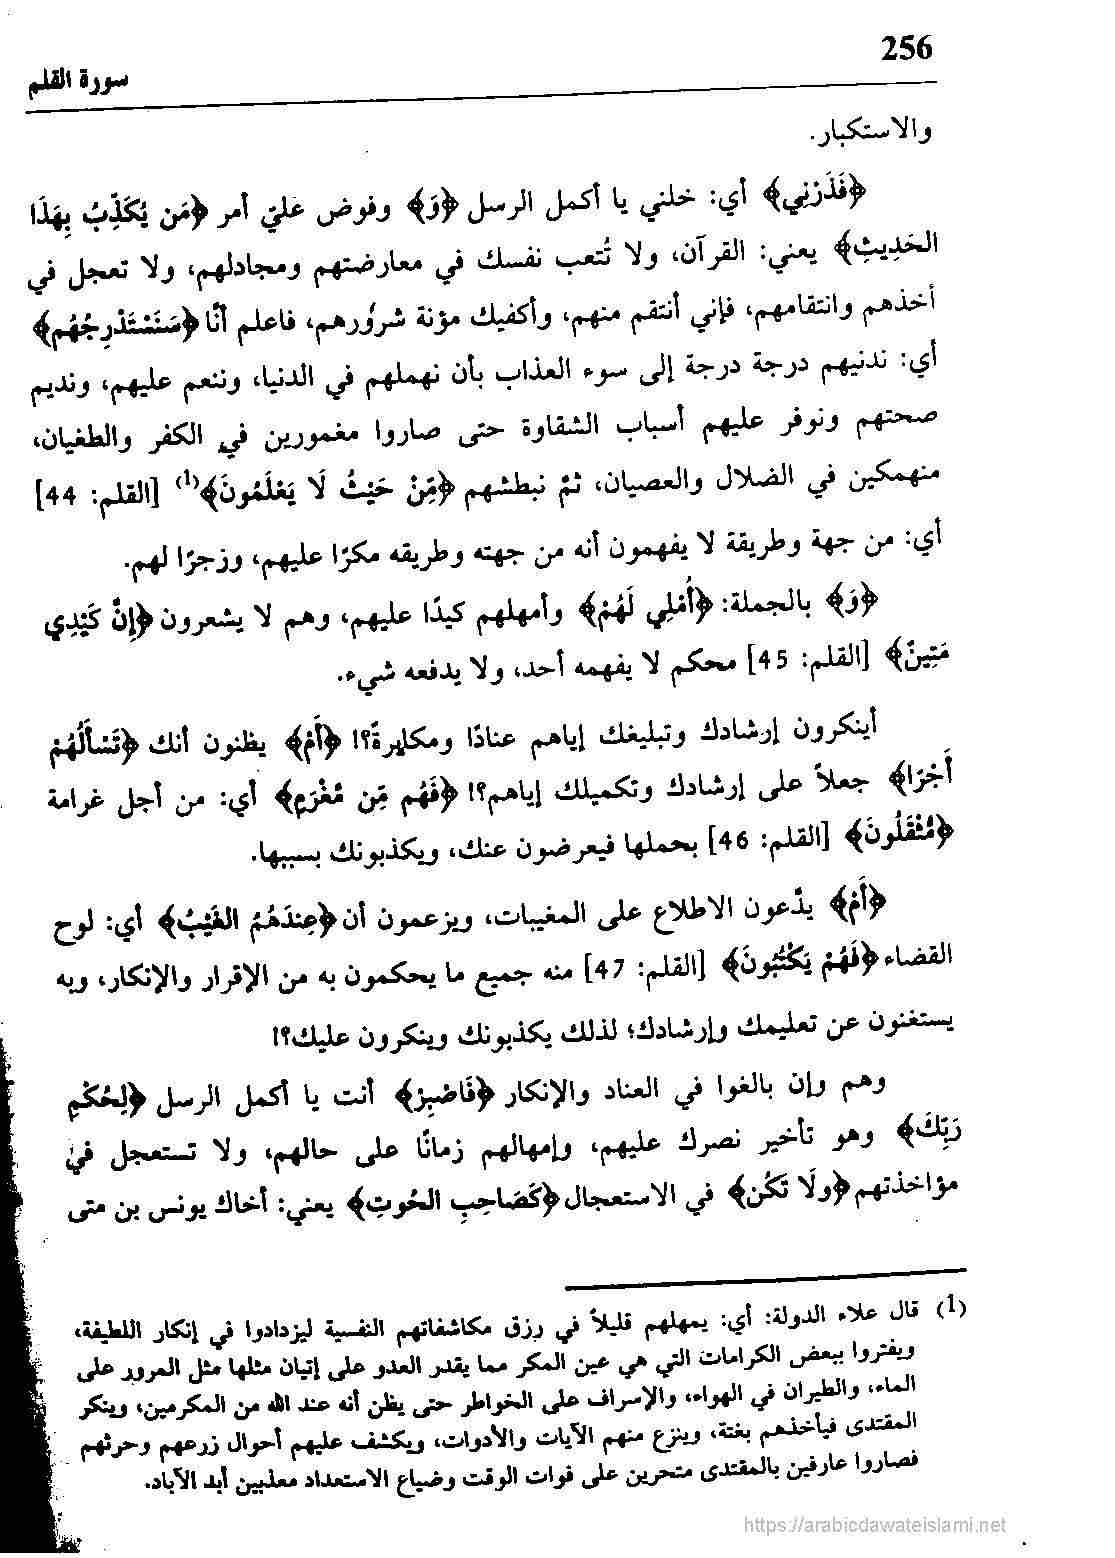 256
سورة القلم
والاستكبار.
﴿فَذَرْنِي﴾ أي: خلني يا أكمل الرسل ﴿وَ﴾ وفوض عَليّ أمر ﴿مَن يُكَذِّبُ بِهَذَا
الحَدِيثِ﴾ يعني: القرآن، ولا تُتعب نفسك في معارضتهم ومجادلهم، ولا تعجل في
أخذهم وانتقامهم، فإني أنتقم منهم، وأكفيك مؤنة شرُورهم، فاعلم أنَّا ﴿سَنَسْتَدْرِجُهُم﴾
أي: ندنيهم درجة درجة إلى سوء العذاب بأن نهملهم في الدنيا، وننعم عليهم، ونديم
صحتهم ونوفر عليهم أسباب الشقاوة حتى صاروا مغمورين في الكفر والطغيان،
منهمكين في الضلال والعصيان، ثمَّ نبطشهم ﴿مِّنْ حَيْثُ لَا يَعْلَمُونَ﴾(1) [القلم: 44]
أي: من جهة وطريقة لا يفهمون أنه من جهته وطريقه مكرًا عليهم، وزجرًا لهم.
﴿وَ﴾ بالجملة: ﴿أُمْلِي لَهُمْ﴾ وأمهلهم كيدًا عليهم، وهم لا يشعرون ﴿إِنَّ كَيْدِي
مَتِينٌ﴾ [القلم: 45] محكم لا يفهمه أحد، ولا يدفعه شيء.
أينكرون إرشادك وتبليغك إياهم عنادًا ومكابرةً؟! ﴿أَمْ﴾ يظنون أنك ﴿تَسْأَلُهُمْ
أَجْرًا﴾ جعلاً على إرشادك وتكميلك إياهم؟! ﴿فَهُم مِّن مَّغْرَمٍ﴾ أي: من أجل غرامة
﴿مُّثْقَلُونَ﴾ [القلم: 46] بحملها فيعرضون عنك، ويكذبونك بسببها.
﴿أَمْ﴾ يدَّعون الاطلاع على المغيبات، ويزعمون أن ﴿عِندَهُمُ الغَيْبُ﴾ أي: لوح
القضاء ﴿فَهُمْ يَكْتُبُونَ﴾ [القلم: 47] منه جميع ما يحكمون به من الإقرار والإنكار، وبه
يستغنون عن تعليمك وإرشادك؛ لذلك يكذبونك وينكرون عليك؟!
وهم وإن بالغوا في العناد والإنكار ﴿فَاصْبِرْ﴾ أنت يا أكمل الرسل ﴿لِحُكْمِ
رَبِّكَ﴾ وهو تأخير نصرك عليهم، وإمهالهم زمانًا على حالهم، ولا تستعجل في
مؤاخذتهم ﴿ولَا تَكُن﴾ في الاستعجال ﴿كَصَاحِبِ الحُوتِ﴾ يعني: أخاك يونس بن متى
(1) قال علاء الدولة: أي: يمهلهم قليلاً في رزق مكاشفاتهم النفسية ليزدادوا في إنكار اللطيفة،
ويفتروا ببعض الكرامات التي هي عين المكر مما يقدر العدو على إتيان مثلها مثل المرور على
الماء، والطيران في الهواء، والإسراف على الخواطر حتى يظن أنه عند الله من المكرمين، وينكر
المقتدى فيأخذهم بغتة، وينزع منهم الآيات والأدوات، ويكشف عليهم أحوال زرعهم وحرثهم
فصاروا عارفين بالمقتدى متحرين على فوات الوقت وضياع الاستعداد معذبين أبد الآباد.
https://arabicdawateislami.net